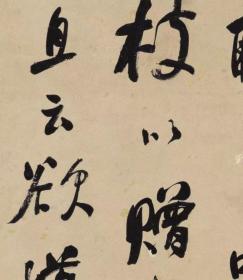 枝以贈
且云欲